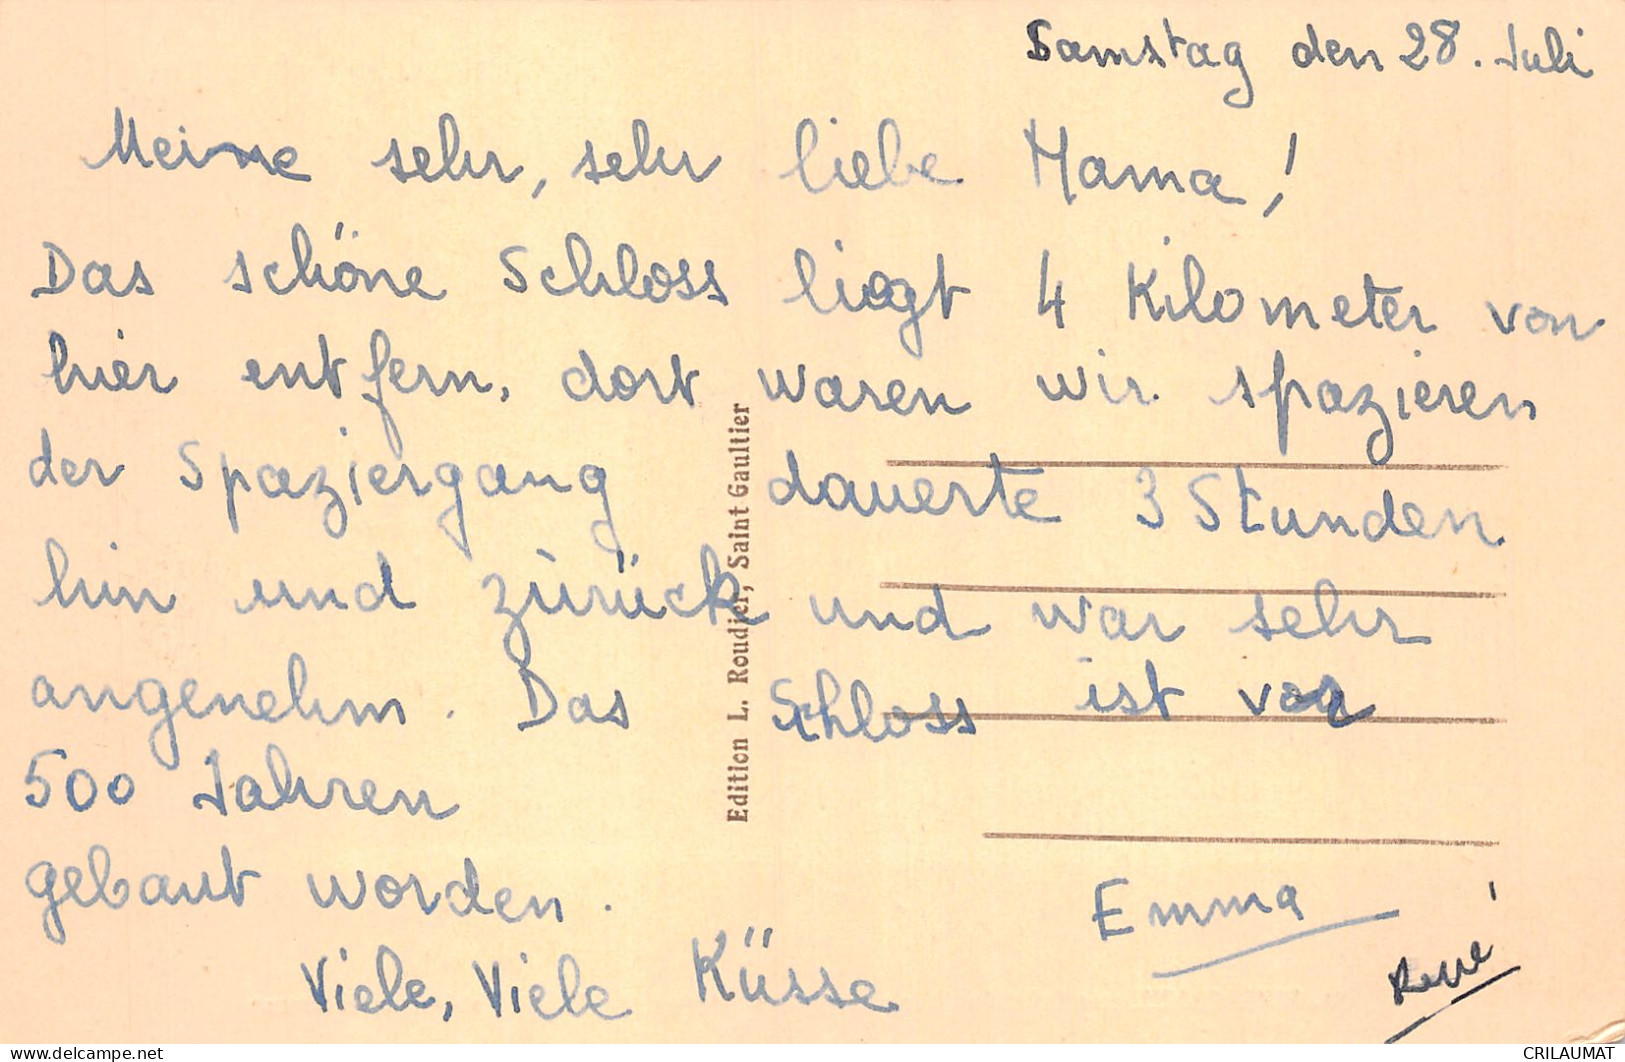 Samstag den 28. Juli
Meine sehr, sehr liebe Mama!
Das schöne Schloss liegt 4 Kilometer von
hier entfern, dort waren wir spazieren
der Spaziergang dauerte 3 Stunden
hin und zürück und war sehr
angenehm. Das Schloss ist vor
500 Jahren
gebaut worden.
Viele, Viele Küsse
Emma
René
Edition L. Roudier, Saint Gaultier
delcampe.net
CRILAUMAT